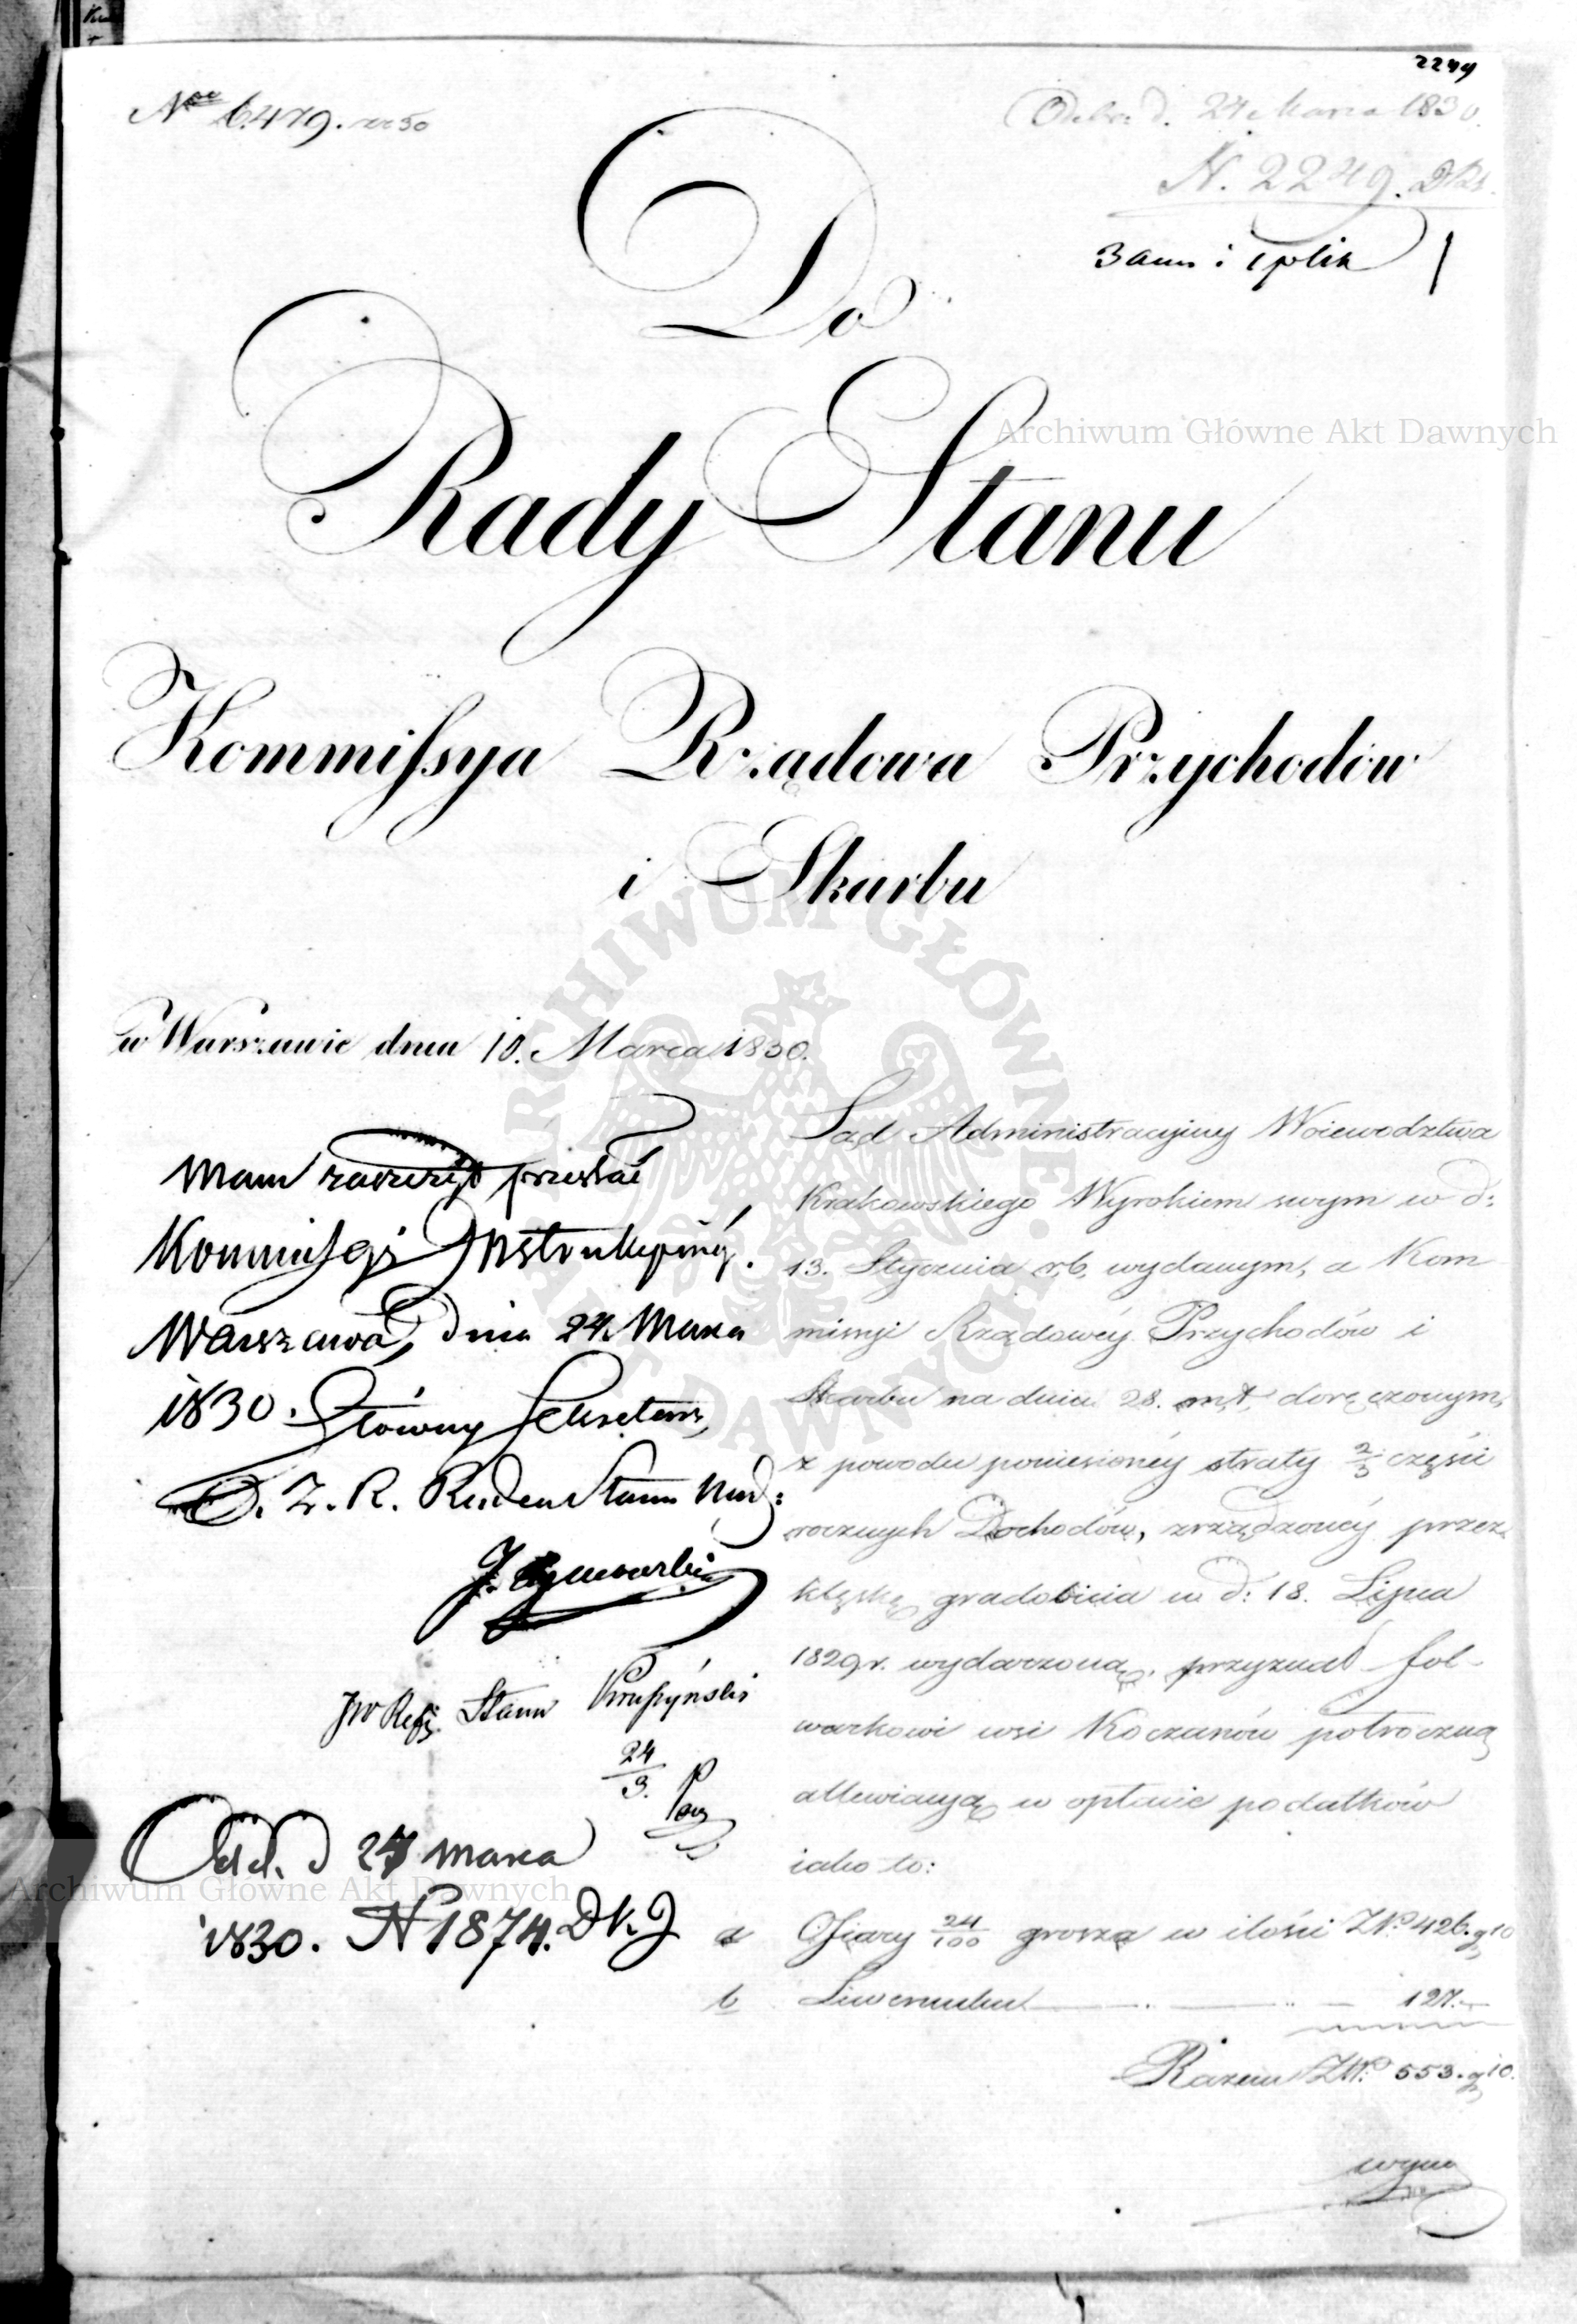 2249
Nro 6479. 
Odebr: d. 24 Marca 1830.
N. 2249. DRS.
3 ann: i 1 plik
Do
Rady Stanu
Kommissya Rządowa Przychodów
i Skarbu
w Warszawie dnia 10. Marca 1830.
Mam zaszczyt przesłać
Kommissyi Instrukcyiney.
Warszawa, dnia 24 Marca
1830. Główny Sekretarz
Z. R. Radca Stanu Nad:
JW Ref: Stanu Kruszyński
24/3.
Odd. d 27 Marca
1830. N 1874. DK.J
Sąd Administracyiny Woiewodztwa
Krakowskiego Wyrokiem swym w d:
13. Stycznia r,b, wydanym, a Kom
missyi Rządowéy Przychodów i
Skarbu na dniu 28. m,t, doręczonym,
z powodu poniesionéy straty 2/3 części
rocznych Dochodów, zrządzonéy przez
klęskę gradobicia w d: 18. Lipca
1829 r. wydarzoną, przyznał fol-
warkowi wsi Koczanów potroczną
allewiacyą w opłacie podatków
iako to:
a Ofiary 24/100 grosza w ilości Złp 426. g 10
b Liwerunku 127.
Razem Złp 553. g 10.